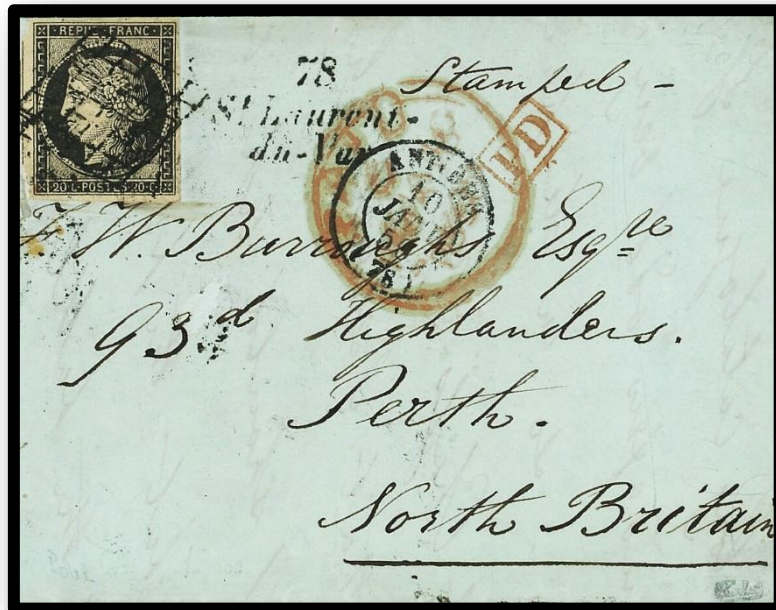 REPUB. FRANC.
20.C. POSTES 20.C.
78
St. Laurent-
du-Var
Stamped -
PD
ANTIBES
10
JANV.
(78)
F. W. Burroughs Esqre
93d Highlanders.
Perth.
North Britain